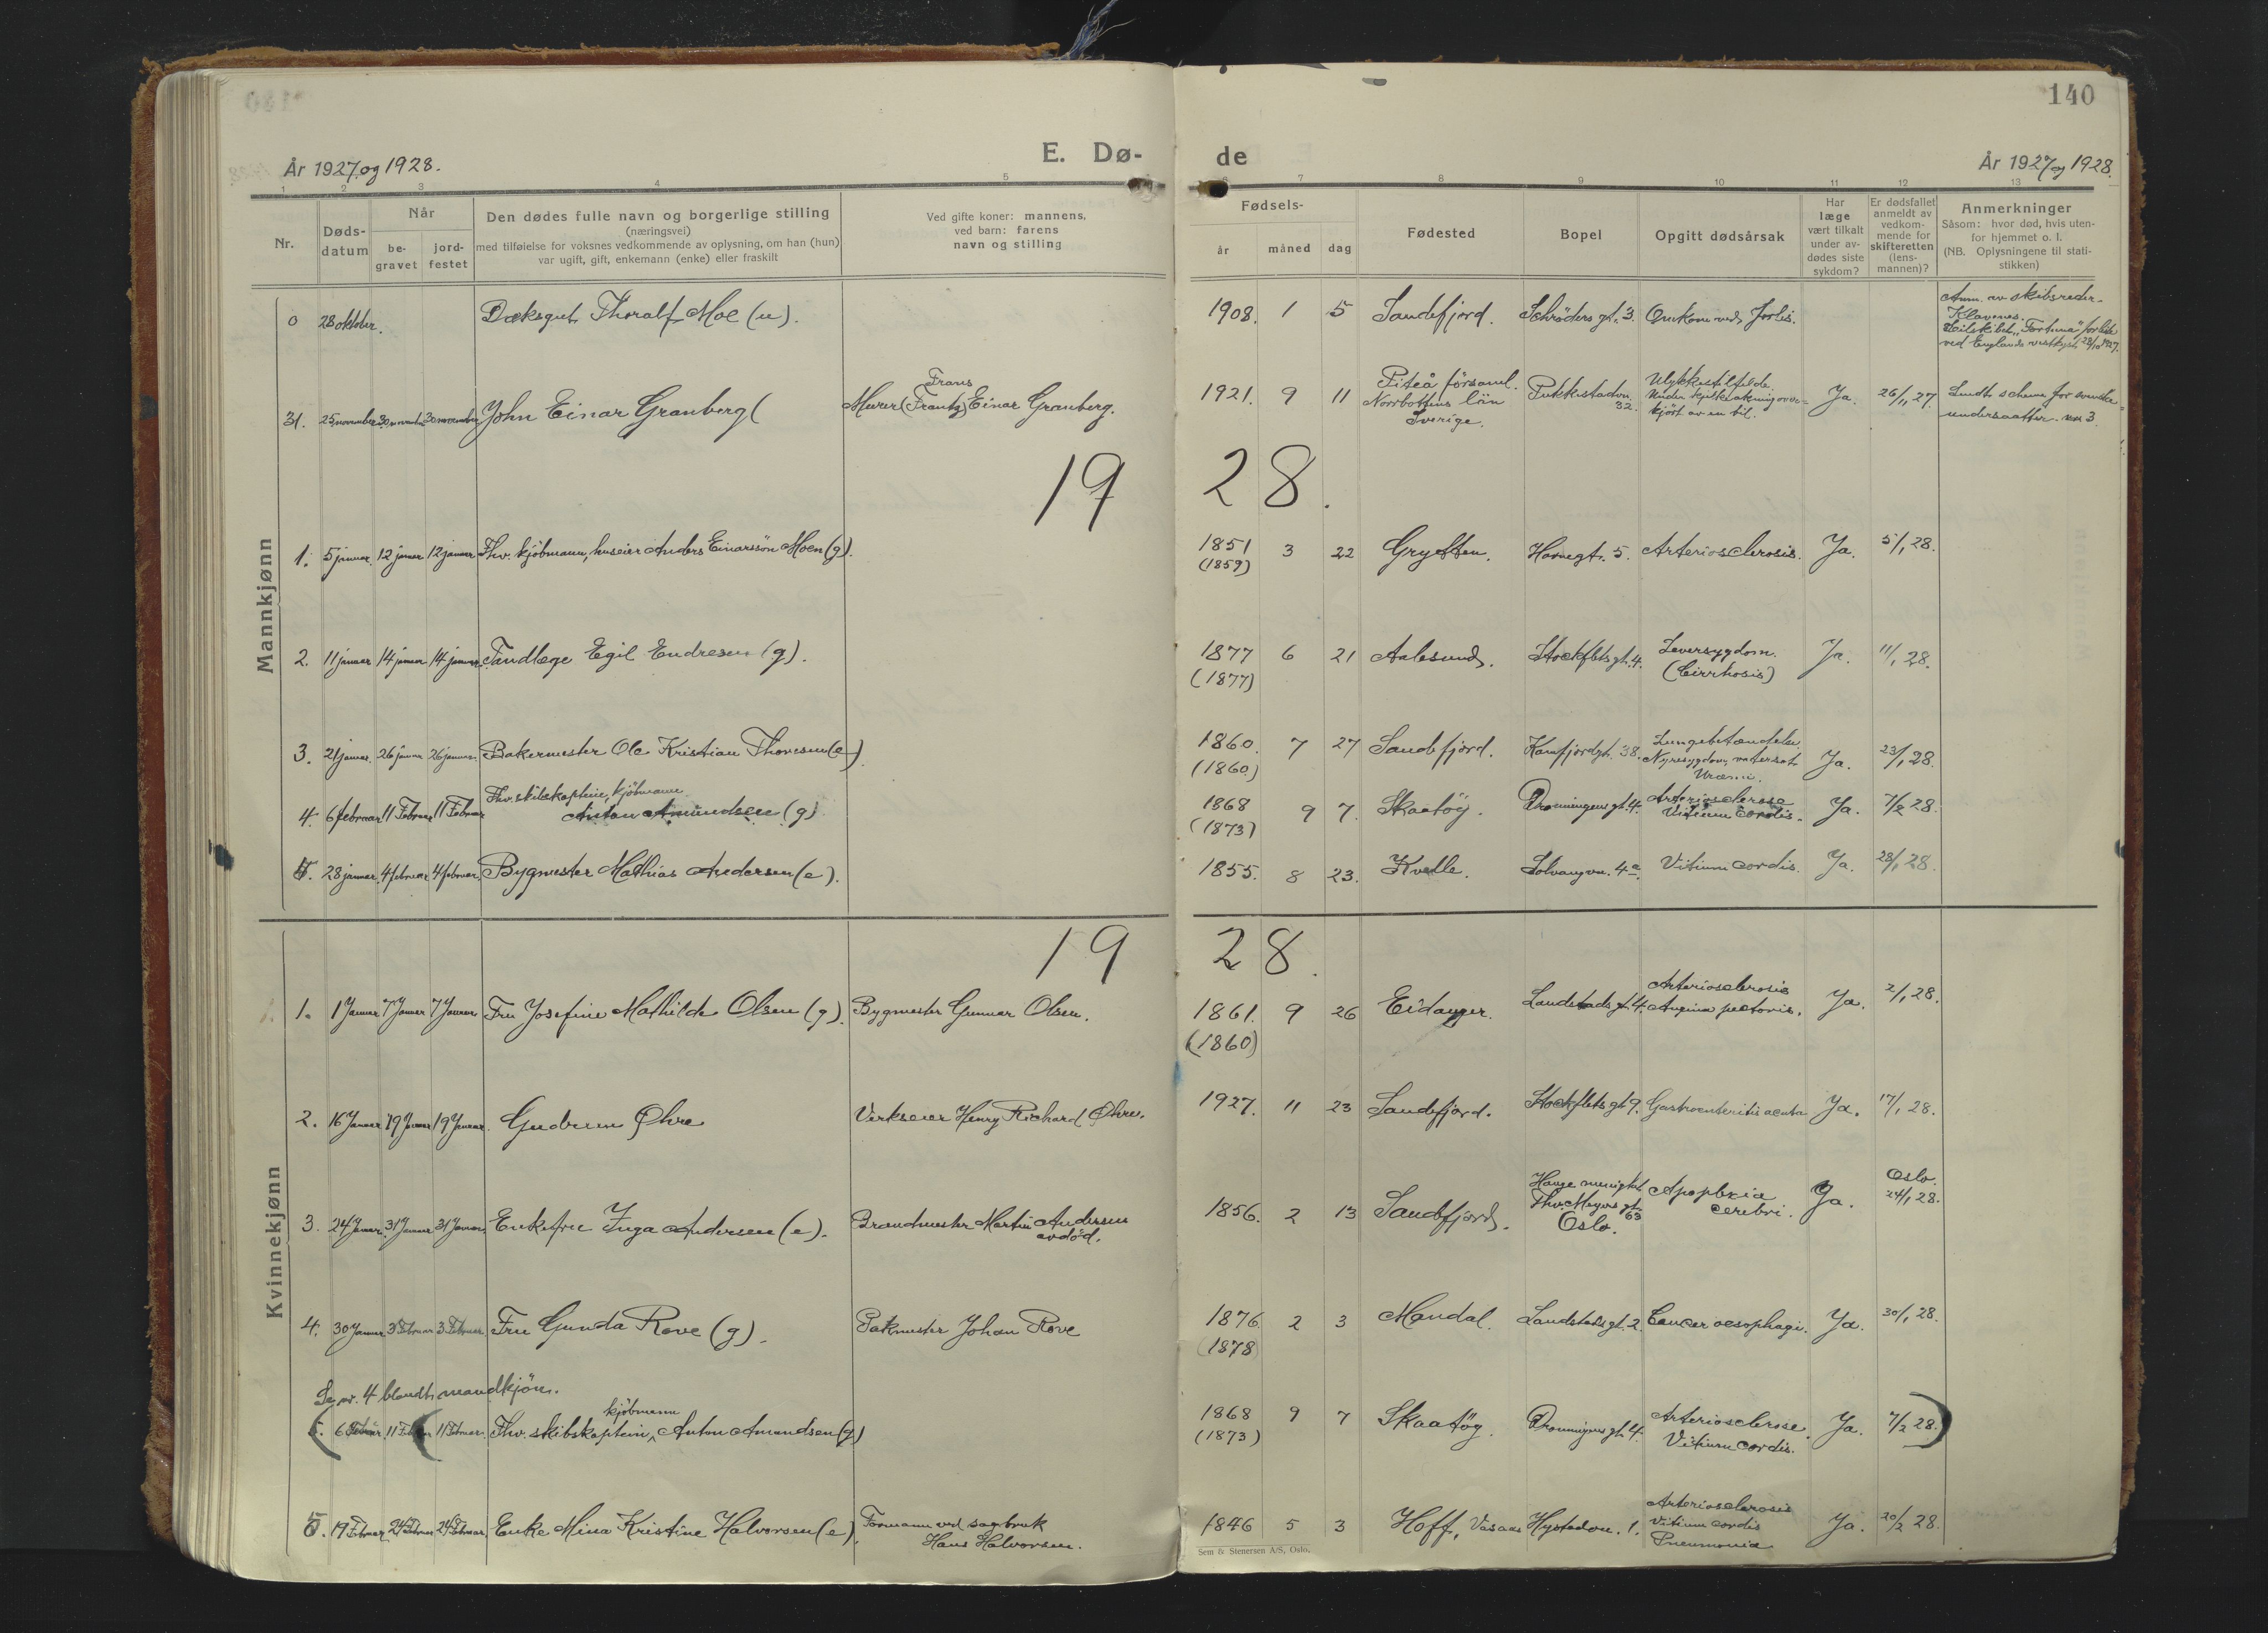 140
År 1927 og 1928.
E. Dø-
de
År 1927 og 1928.
1 2 3 4 5 6 7 8 9 10 11 12 13
Nr.
Døds-
datum
Når
be-
gravet
jord-
festet
Den dødes fulle navn og borgerlige stilling
(næringsvei)
med tilføielse for voksnes vedkommende av oplysning, om han (hun)
var ugift, gift, enkemann (enke) eller fraskilt
Ved gifte koner: mannens,
ved barn: farens
navn og stilling
Fødsels-
år måned dag
Fødested
Bopel
Opgitt dødsårsak
Har
læge
vært tilkalt
under av-
dødes siste
sykdom?
Er dødsfallet
anmeldt av
vedkom-
mende for
skifteretten
(lens-
mannen)?
Anmerkninger
Såsom: hvor død, hvis uten-
for hjemmet o. l.
(NB. Oplysningene til stati-
stikken)
Mannkjønn
0 28 oktober. Dæksgut Thoralf Moe (u). 1908. 1 5 Sandefjord. Schrøders gt. 3. Omkom ved forlis.
Anm. av skibsreder
Klavenes.
Seilskibet "Fortuna" forliste
ved Englands vestkyst 28/10 1927.
31. 25 november 30 november 30 november John Einar Granberg (
Frans
Murer (Frantz) Einar Granberg.
1921. 9 11
Piteå församl.
Norrbottens län
Sverige.
Pukkestadvn.
32.
Ulykkestilfelde.
Under kjelkeakning over-
kjørt av en bil.
Ja. 26/11 27.
Sendt schema for svenske
undersaatter nr. 3.
19 28.
1. 5 januar. 12 januar 12 januar Fhv. kjøbmann, huseier Anders Einarssøn Moen (g).
1851
(1859)
3 22 Gryften. Havnegt. 5. Arteriosclerosis. Ja. 5/1 28.
2. 11 januar 14 januar 14 januar Tandlæge Egil Endresen (g).
1877
(1877)
6 21 Aalesund. Stockflets gt. 4.
Leversygdom.
(Cirrhosis)
Ja. 11/1 28.
3. 21 januar. 26 januar 26 januar Bakermester Ole Kristian Thoresen (e).
1860.
(1860)
7 27 Sandefjord. Kamfjordgt. 38.
Lungebetændelse.
Nyresygdom, vatersot
Uræmi.
Ja. 23/1 28.
4. 6 februar 11 Februar 11 Februar
Fhv. skibskaptein, kjøbmann
Anton Amundsen (g)
1868
(1873)
9 7. Skaatøy. Dronningens gt. 4.
Arteriosclerose
Vitium cordis.
Ja. 7/2 28.
5. 28 januar. 4 februar 4 februar. Bygmester Mathias Andersen (e). 1855. 8 23. Kvelle. Solvangvn. 4a. Vitium cordis. Ja. 28/1 28.
Kvinnekjønn
19 28.
1. 1 Januar 7 Januar 7 Januar Fru Josefine Mathilde Olsen (g). Bygmester Gunnar Olsen.
1861.
(1860)
9 26 Eidanger. Landstads gt. 4.
Arteriosclerosis
Angina pectoris.
Ja. 2/1 28.
2. 16 Januar 19 Januar 19 Januar. Gudrun Øhre Verkseier Henry Richard Øhre. 1927. 11 23 Sandefjord. Stockflets gt. 9. Gastroenteritis acuta Ja. 17/1 28.
3. 24 Januar. 31 Januar 31 Januar. Enkefru Inga Andersen (e).
Brandmester Martin Andersen
avdød.
1856. 2 13 Sandefjord.
Hauge menighet
Thv. Meyers gt.
63
Oslo.
Apoplexia
cerebri.
Ja.
Oslo.
24/1 28.
4. 30 Januar 3 Februar 3 Februar. Fru Gunda Rove (g). Pakmester Johan Rove
1876
(1878
2 3 Mandal. Landstads gt. 2. Cancer oesophagi. Ja. 30/1 28.
Se nr. 4 blandt mandkjøn.
(5. 6 Februar 11 Februar 11 Februar. Fhv. skibskaptein, kjøbmann Anton Amundsen (g)
1868
(1873)
9 7 Skaatøy. Dronningens gt. 4.
Arteriosclerose.
Vitium cordis.
Ja. 7/2 28.)
5. 19 Februar. 24 Februar 24 Februar. Enke Mina Kristine Halvorsen (e).
Formann ved sagbruk
Hans Halvorsen.
1846 5 3 Hoff, Vasaas Hystadvn. 1.
Arteriosclerosis
Vitium cordis
Pneumonia
Ja. 20/2 28.
Sem & Stenersen A/S, Oslo.